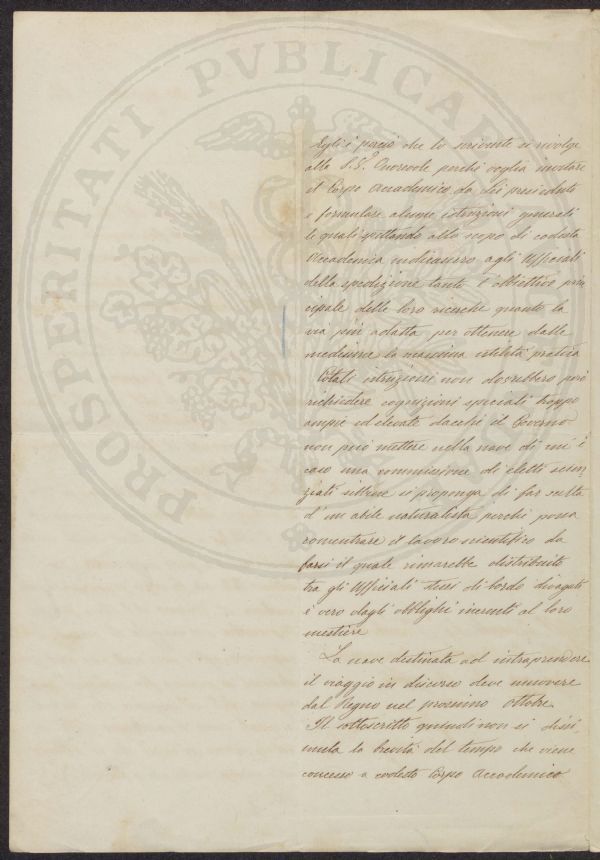 PROSPERITATI PVBLICAE
Egli è perciò che lo scrivente si rivolge
alla S.S. Onorevole perché voglia invitare
il Corpo Accademico da Lei presieduto
a formulare alcune istruzioni generali
le quali spettando allo scopo di codesta
Accademia indicassero agli Uffiziali
della spedizione tanto l'obbiettivo prin
cipale delle loro ricerche quanto la
via più adatta per ottenere dalle
medesime la massima utilità pratica
Cotali istruzioni non dovrebbero però
richiedere cognizioni speciali troppo
ampie ed elevate dacché il Governo
non può mettere nella nave di cui è
caso una commissione di eletti scien
ziati sibbene si proponga di far scelta
d'un abile naturalista perché possa
concentrare il lavoro scientifico da
farsi il quale rimarebbe distribuito
tra gli Uffiziali stessi di bordo
è vero dagli obblighi inerenti al loro
mestiere
La nave destinata ad intraprendere
il viaggio in discorso deve muovere
dal Regno nel prossimo Ottobre
Il sottoscritto quindi non si dissi
mula la brevità del tempo che viene
concesso a codesto Corpo Accademico